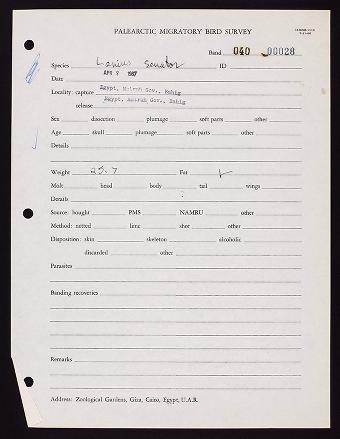 PALEARCTIC MIGRATORY BIRD SURVEY
Band 040 00028
Species Lanius Senator ID
Date APR 2 1967
Locality: capture Egypt, Matruh Gov., Bahig
release Egypt, Matruh Gov., Bahig
Sex dissection plumage soft parts other
Age skull plumage soft parts other
Details
Weight 25.7 Fat ✓
Molt head body tail wings
Details
Source: bought PMS NAMRU other
Method: netted lime shot other
Disposition: skin skeleton alcoholic
discarded other
Parasites
Banding recoveries
Remarks
Address: Zoological Gardens, Giza, Cairo, Egypt, U.A.R.